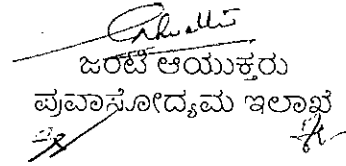 ಜರಟಿ ಆಯುಕ್ತರು
ಪ್ರವಾಸೋದ್ಯಮ ಇಲಾಖೆ